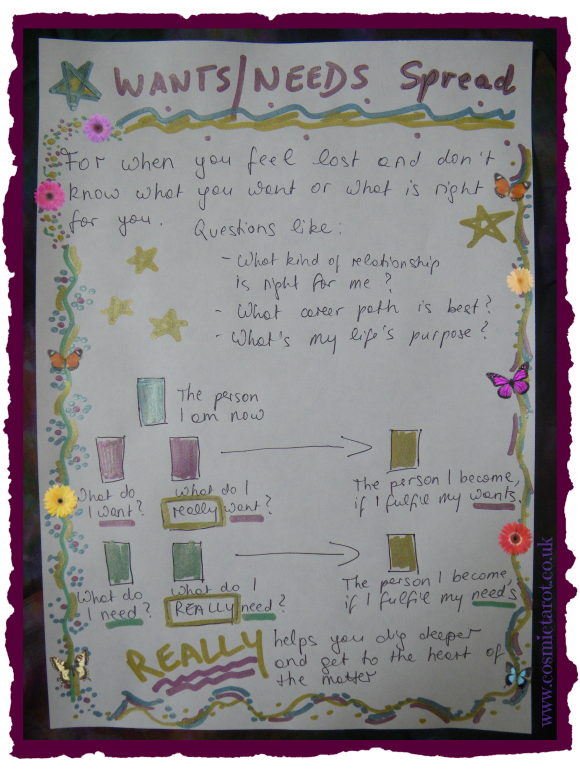 WANTS/NEEDS Spread
For when you feel lost and don't
know what you want or what is right
for you. Questions like:
- What kind of relationship
is right for me?
- What career path is best?
- What's my life's purpose?
The person
I am now
What do
I want?
What do I
really want?
The person I become,
if I fulfil my wants.
What do
I need?
What do I
REALLY need?
The person I become,
if I fulfil my needs
REALLY helps you dig deeper
and get to the heart of
the matter
www.cosmictarot.co.uk